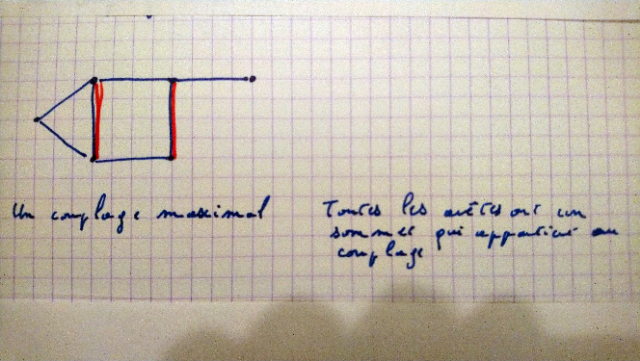 Un couplage maximal
Toutes les arêtes ont un
sommet qui appartient au
couplage